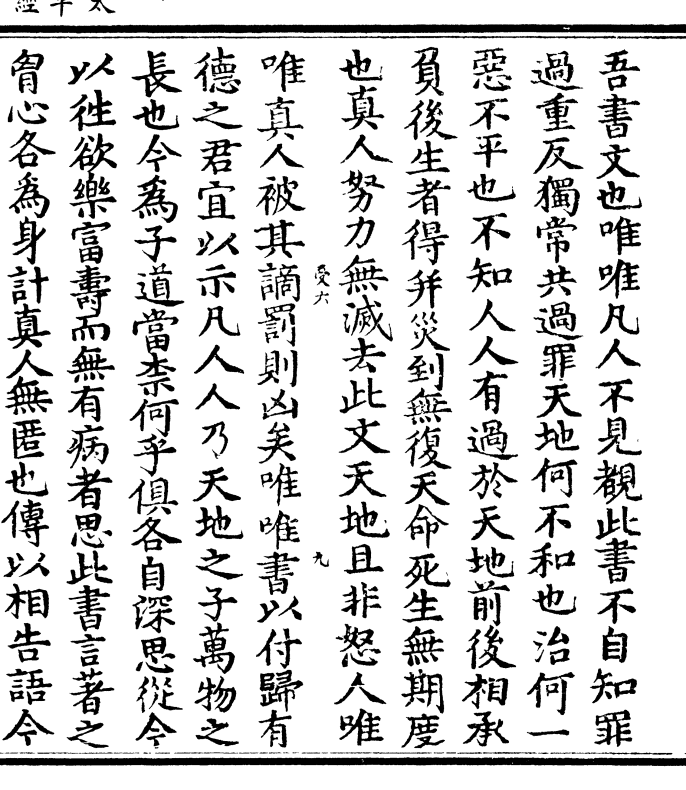 吾書文也唯唯凡人不見覩此書不自知罪
過重反獨常共過罪天地何不和也治何一
惡不平也不知人人有過於天地前後相承
負後生者得并災到無復天命死生無期度
也真人努力無滅去此文天地且非怒人唯
受六
九
唯真人被其謫罰則凶矣唯唯書以付歸有
德之君宜以示凡人人乃天地之子萬物之
長也今為子道當柰何乎俱各自深思從今
以徃欲樂富壽而無有病者思此書言著之
胷心各為身計真人無匿也傳以相告語今